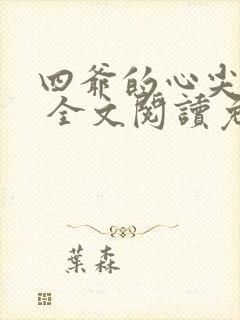 四爷的心尖
全文閱讀
葉森